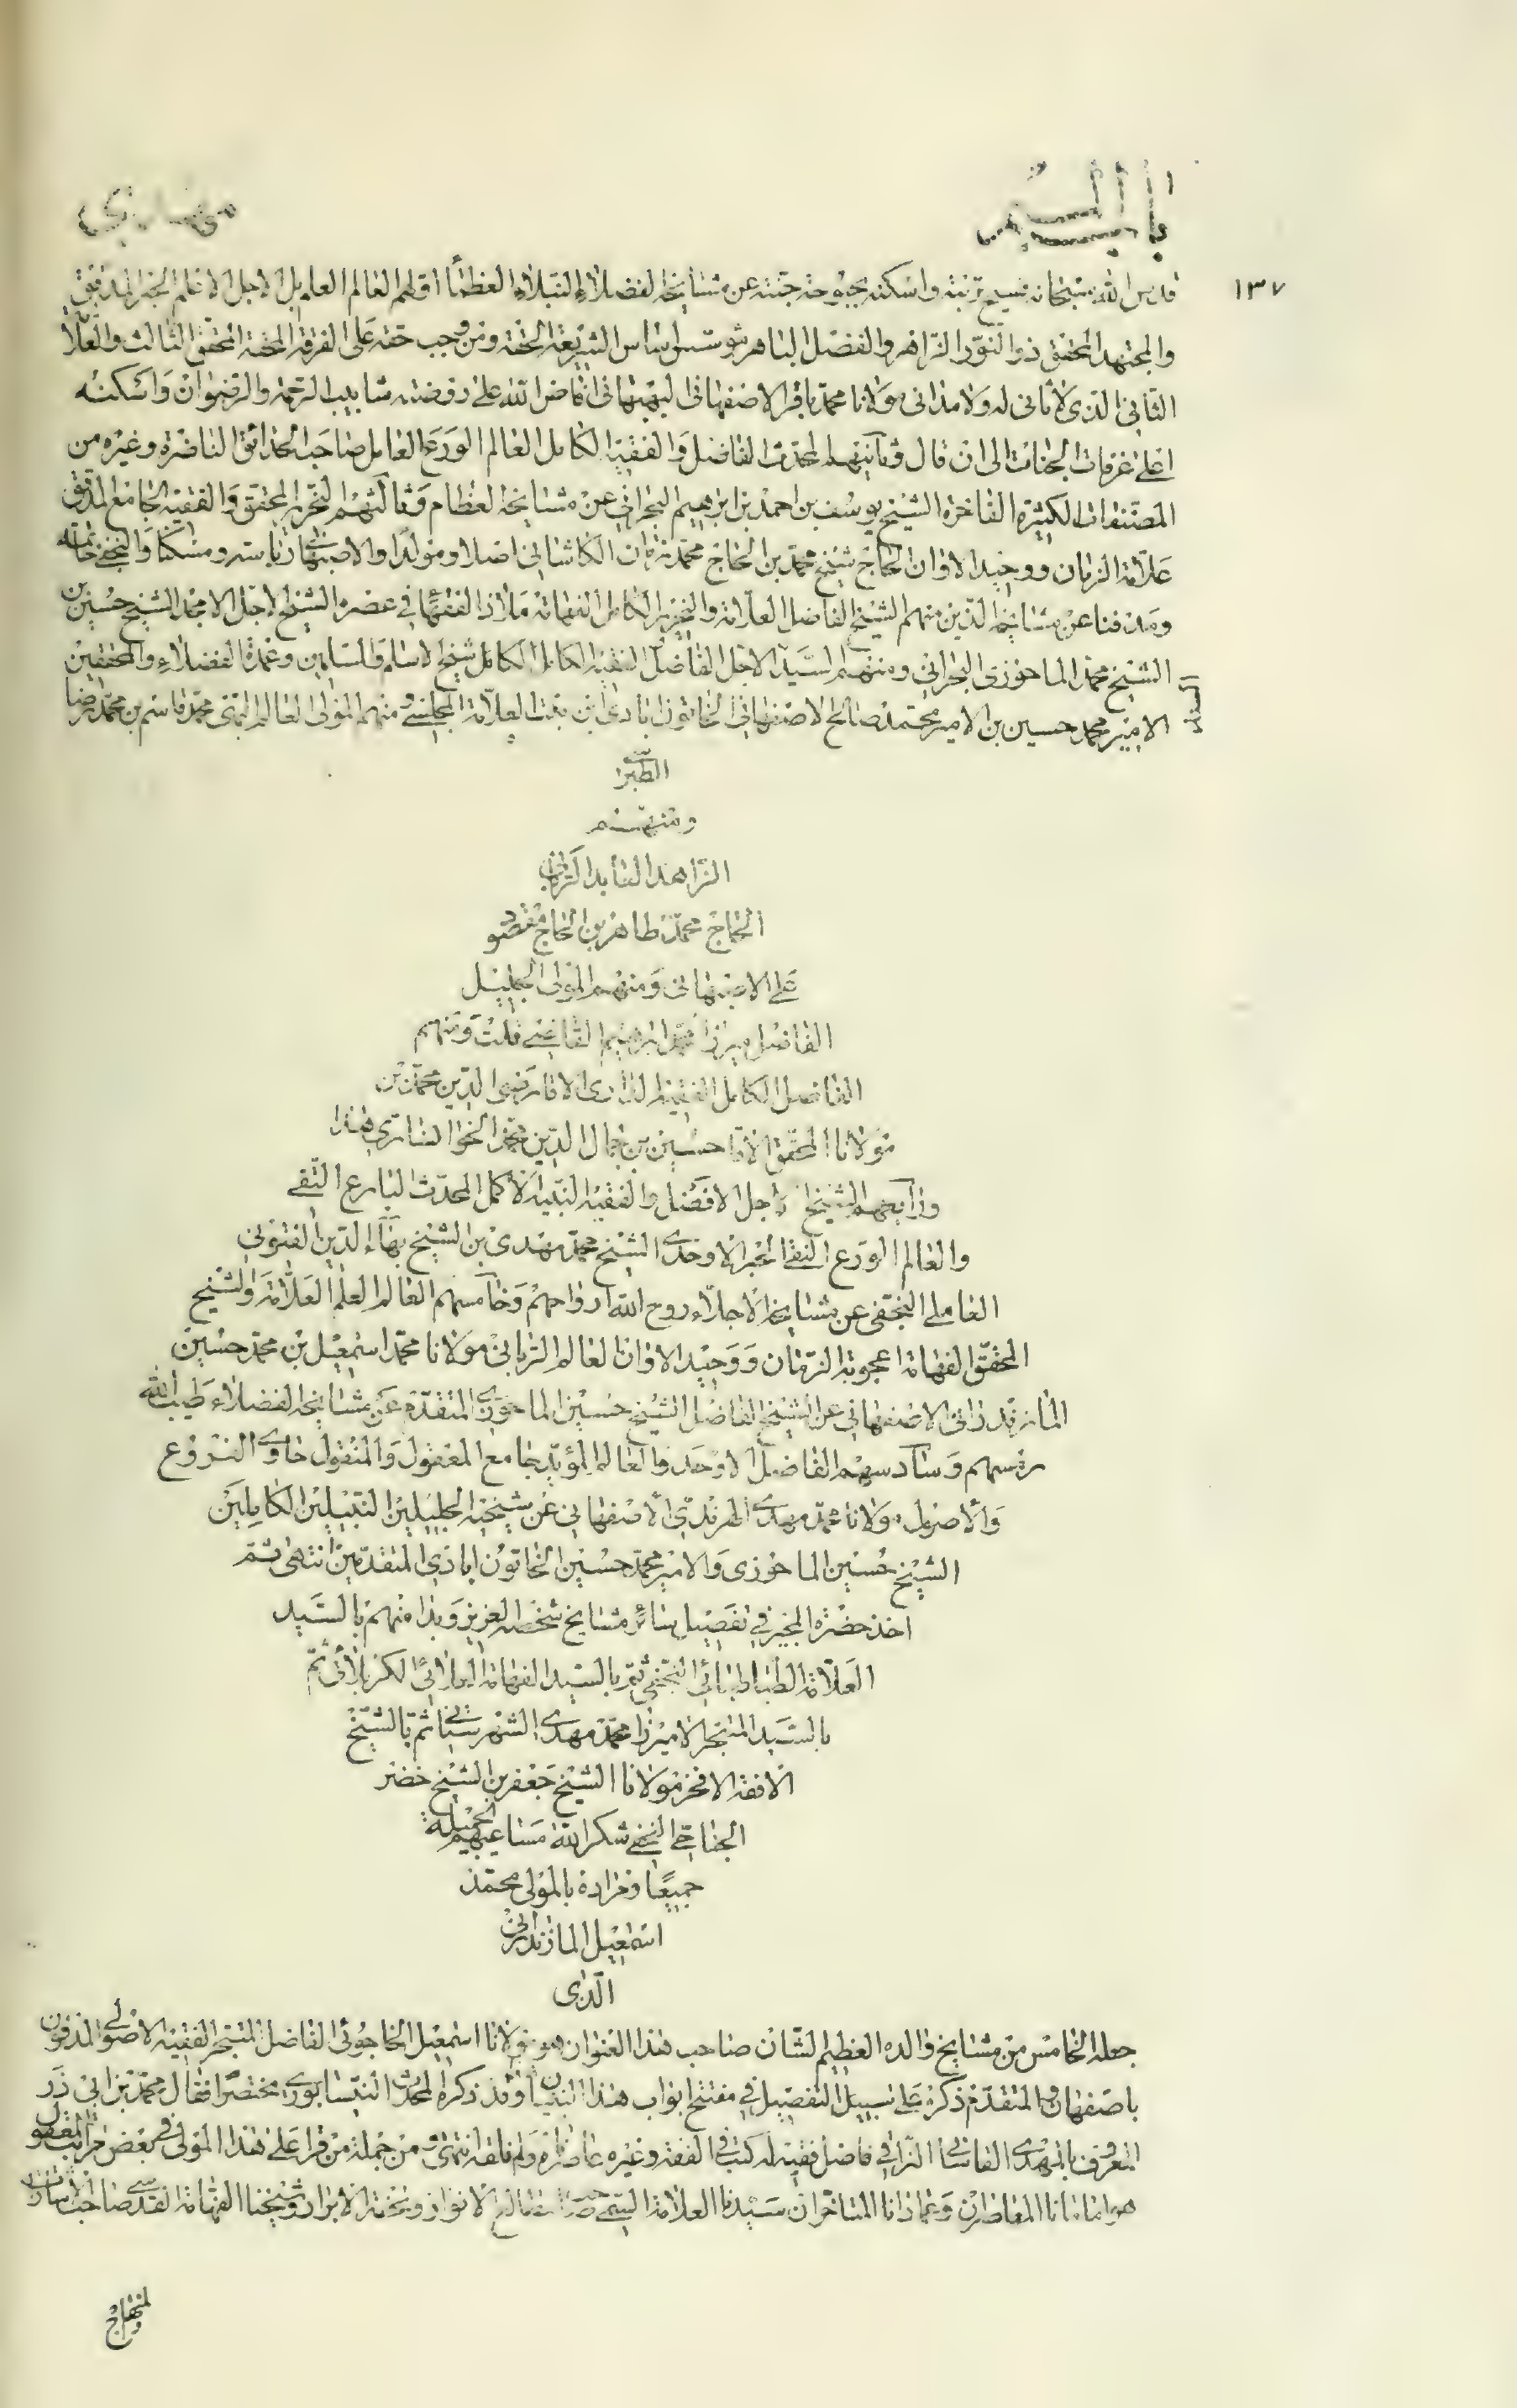 باب الميم
مهدي
١٣٧
قدس الله سبحانه فسيح تربته واسكنه بحبوحة جنته عن مشايخه الفضلاء النبلاء العظماء اولهم العالم العامل الاجل الاعلم الخبر المدقق
والمجتهد المحقق ذو النور الزاهر والفضل الباهر مؤسس اساس الشريعة الحقة ومن وجب حقه على الفرقة المحقة المحقق الثالث والعلامة
الثاني الذي لا ثاني له ولا مداني مولانا محمد باقر الاصفهاني البهبهاني افاض الله على روضته شآبيب الرحمة والرضوان واسكنه
اعلى غرفات الجنات الى ان قال وثانيهما المحدث الفاضل والفقيه الكامل العالم الورع العامل صاحب الحدائق الناضرة وغيره من
المصنفات الكثيرة الفاخرة الشيخ يوسف بن احمد بن ابرهيم البحراني عن مشايخه العظام وثالثهم النحرير المحقق والفقيه الجامع المدقق
علامة الزمان ووحيد الاوان الحاج شيخ محمد بن الحاج محمد زمان الكاشاني اصلا ومولدا والاصبهاني رياسة ومسكنا والنجفي خاتمة
ومدفنا عن مشايخه الذين منهم الشيخ الفاضل العلامة والنحرير الكامل الفهامة ملاذ الفقهاء في عصره الشيخ الاجل الامجد الشيخ حسين بن
الشيخ محمد الماحوزى البحراني ومنهم السيد الاجل الفاضل الفقيه الكامل الكامل شيخ الاسلام والمسلمين وعمدة الفضلاء والمحققين
الامير محمد حسين بن الامير محمد صالح الاصفهاني الخاتون ابادى ابن بنت العلامة المجلسي ومنهم المولى العالم التقى محمد قاسم بن محمد رضا
الطبرسي
ومنهم
الزاهد العابد الرباني
الحاج محمد طاهر بن الحاج مقصود
على الاصبهاني ومنهم المولى الجليل
الفاضل ميرزا محمد ابرهيم القاضي قلت ومنهم
الفاضل الكامل الفقيه الدارى الاقا رضى الدين محمد بن
مولانا المحقق الاقا حسين بن جمال الدين محمد الخوانسارى هذا
ورابعهم الشيخ الاجل الافضل والفقيه النبيه الاكمل المحدث البارع التقي
والعالم الورع النقي الحبر الاوحدى الشيخ محمد مهدى بن الشيخ بهاء الدين الفتوني
العاملى النجفى عن مشايخه الاجلاء روح الله ارواحهم وخامسهم العالم العلم العلامة والشيخ
المحقق الفهامة اعجوبة الزمان ووحيد الاوان العالم الربانى مولانا محمد اسمعيل بن محمد حسين
المازندرانى الاصفهانى عن الشيخ الفاضل الشيخ حسين الماحوزى المتقدم عن مشايخه الفضلاء طيب الله
رمسهم وسادسهم الفاضل الاوحد والعالم المؤيد جامع المعقول والمنقول حاوى الفروع
والاصول مولانا محمد مهدى الهرندى الاصفهانى عن شيخيه الجليلين النبيلين الكاملين
الشيخ حسين الماحوزى والامير محمد حسين الخاتون ابادى المتقدمين انتهى ثم
اخذ حضرة المجيز في تفصيل سائر مشايخ شخصه العزيز وبدا منهم بالسيد
العلامة الطباطبائى النجفى ثم بالسيد الفهامة الحائرى الكربلائى ثم
بالسيد المتبحر الاميرزا محمد مهدى الشهرستانى ثم بالشيخ
الافقه الافخر مولانا الشيخ جعفر بن الشيخ خضر
الجناجى النجفى شكر الله مساعيهم الجميلة
جميعا وزاده بالمولى محمد
اسمعيل المازندرانى
الذى
جعله الخامس من مشايخ والده العظيم الشان صاحب هذا العنوان هو مولانا اسمعيل الخاجوئى الفاضل المتبحر الفقيه الاصولى المدفون
باصفهان والمتقدم ذكره على سبيل التفصيل في مفتتح ابواب هذا البنيان وقد ذكره المحدث النيسابورى مختصرا فقال محمد بن ابى ذر
المعروف بالمهدى القاسانى النراقى فاضل فقيه له كتب في الفقه وغيره عاصرناه ولم نلقه انتهى ومن جملة من قرا على هذا المولى في بعض مراتب المعقول
هو امامانا المعاصران وعمادانا المتاخران سيدنا العلامة السمى صاحب مطالع الانوار وتحفة الابرار وشيخنا الفهامة القدسى صاحب الاشارات
والمنهاج